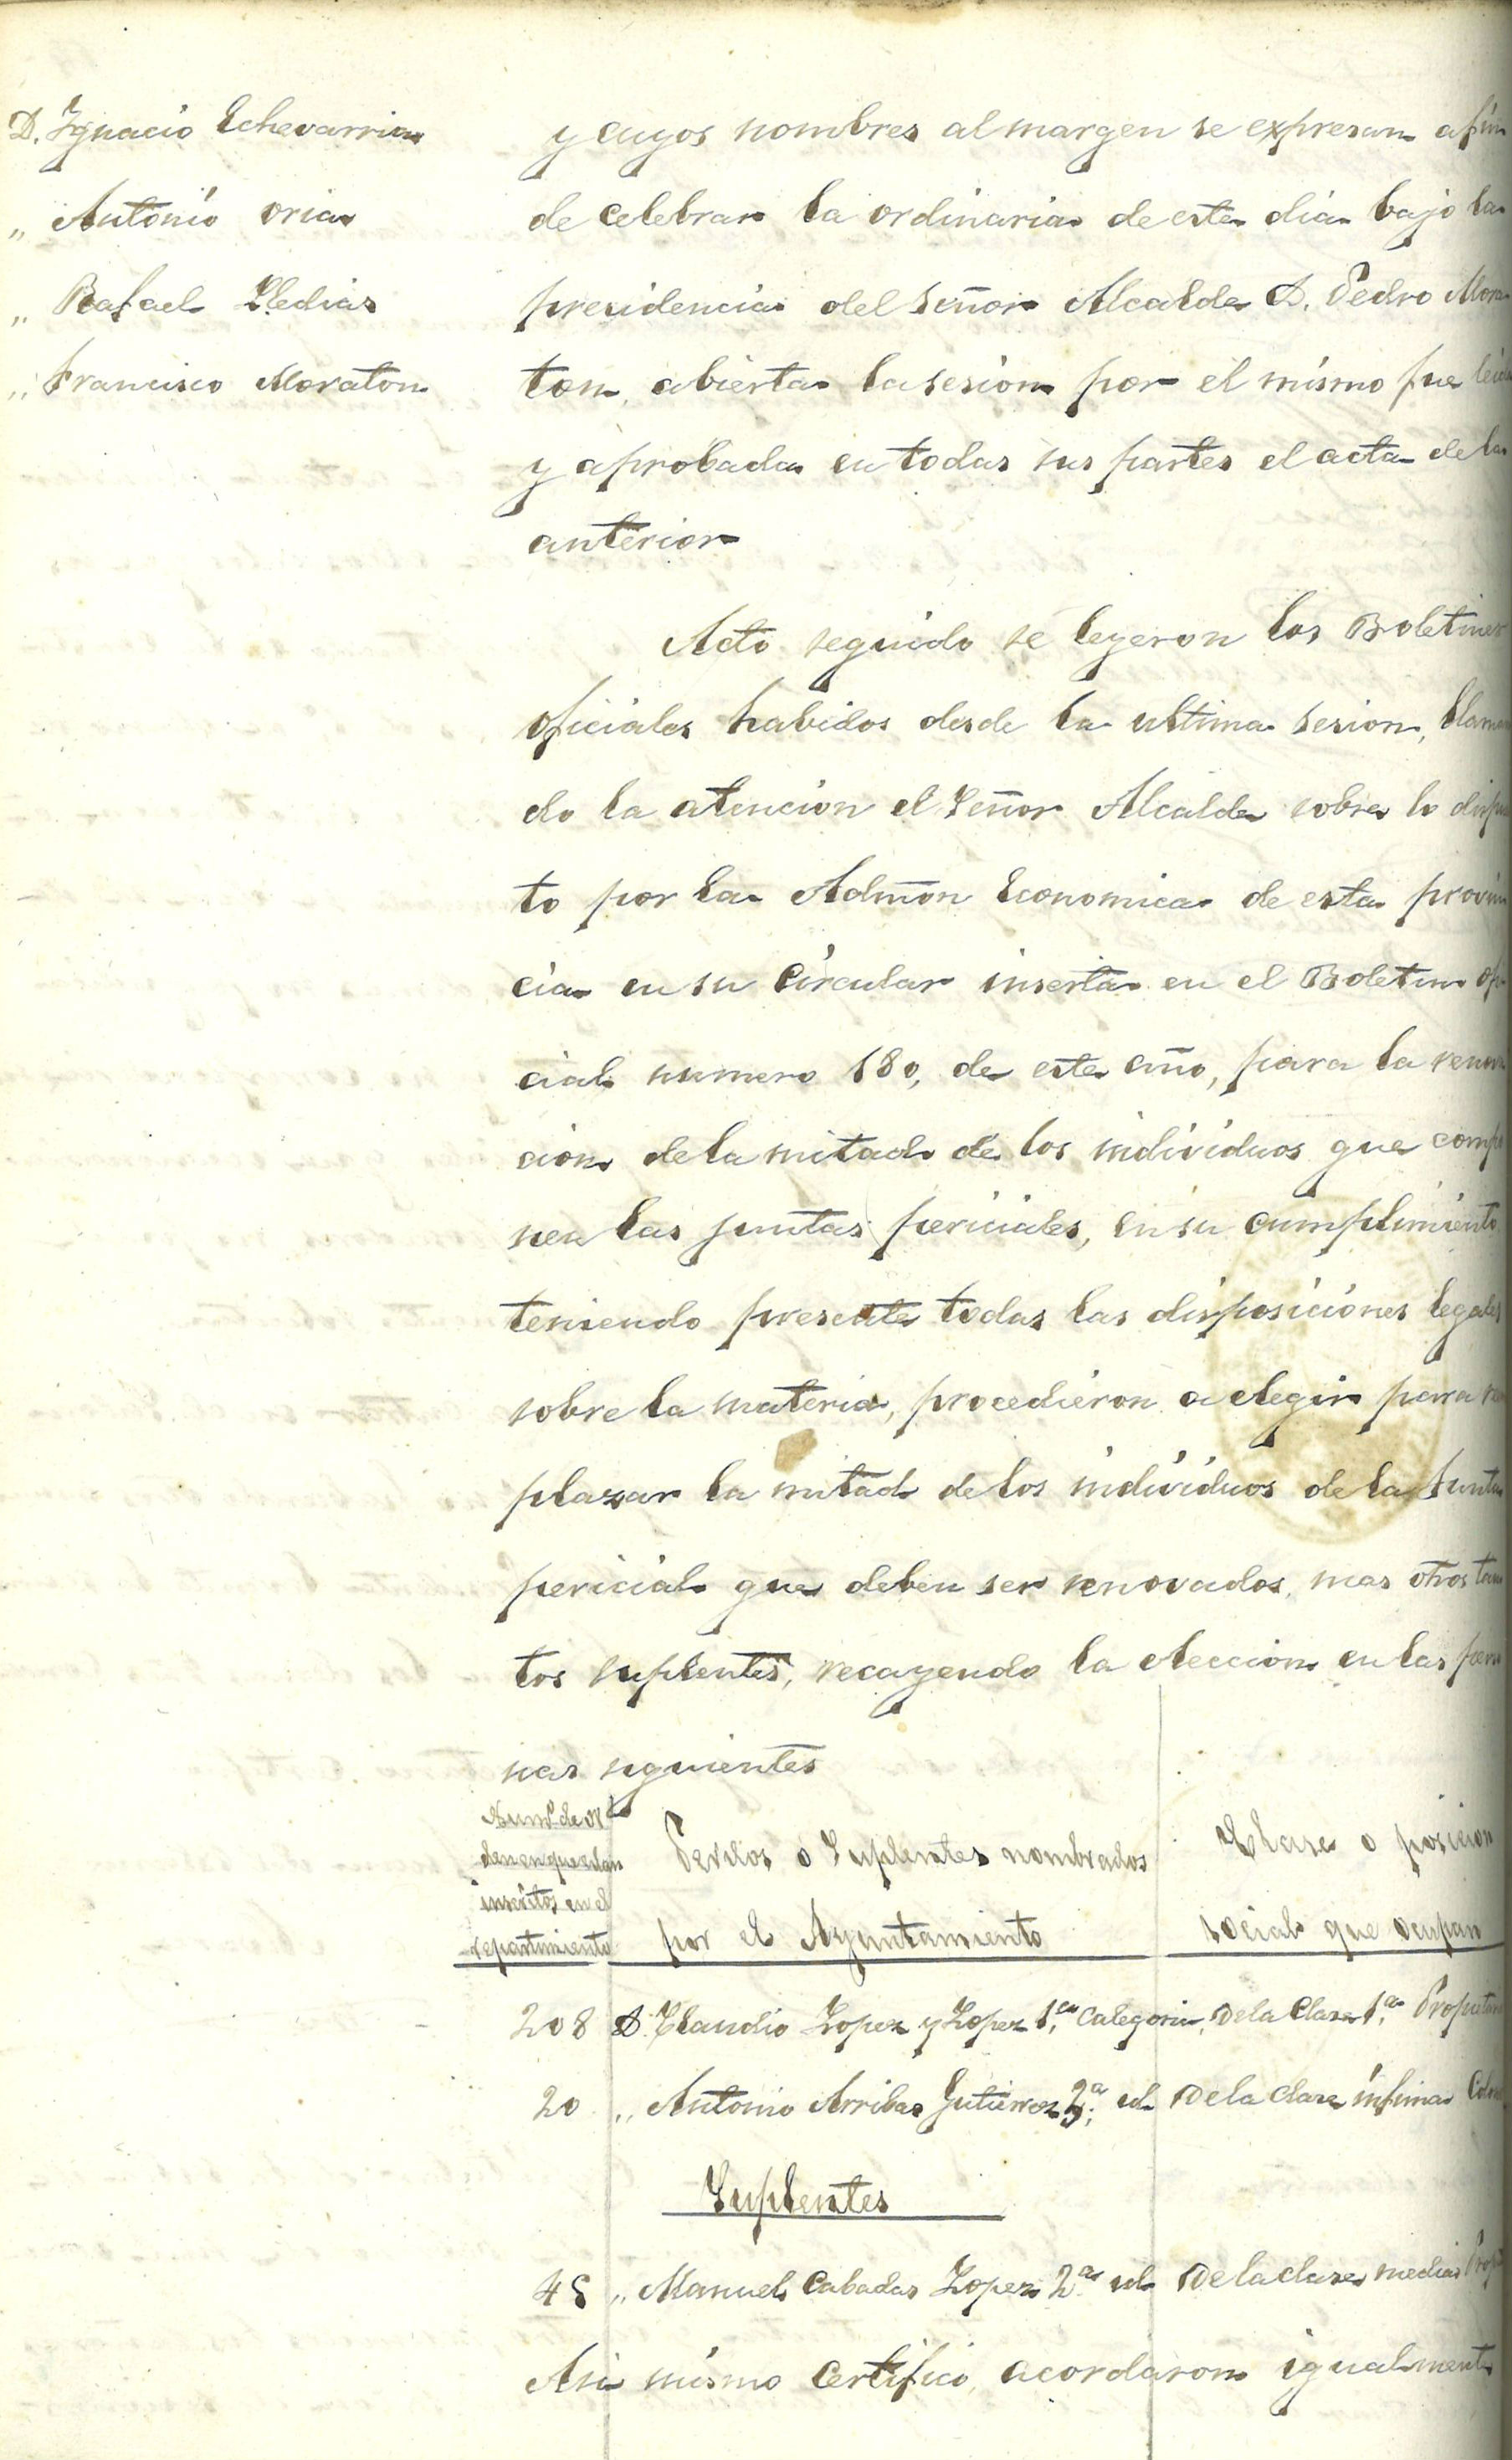 D. Ygnacio Echevarria
„ Antonio oria
„ Rafael Lledias
„ Francisco Moraton
y cuyos nombres al margen se expresan afin
de celebrar la ordinaria de este dia bajo la
presidencia del Señor Alcalde D. Pedro Mora
ton, abierta la sesion por el mismo fue leida
y aprobada en todas sus partes el acta de la
anterior
Acto seguido se leyeron los Boletines
oficiales habidos desde la ultima sesion, llaman
do la atencion el Señor Alcalde sobre lo dispues
to por la Admon Economica de esta provin
cia en su circular inserta en el Boletin ofi
cial numero 180, de este año, para la renova
cion de la mitad de los individuos que compo
nen las juntas periciales, en su cumplimiento
teniendo presente todas las disposiciones legales
sobre la materia, procedieron a elegir para re
plazar la mitad de los individuos de la Junta
pericial que deben ser renovados, mas otros tan
tos suplentes, recayendo la eleccion en las perso
nas siguientes
Numº de or
den en que estan
inscritos en el
repartimiento
Peritos o Suplentes nombrados
por el Ayuntamiento
Clase o posicion
social que ocupan
208 D. Claudio Lopez y Lopez 1.ª Categoria, De la Clase 1.ª Propietario
20 „ Antonio Arribas Gutierrez 2ª id De la Clase infima
Suplentes
45 „ Manuel Cabadas Lopez 2ª id De la clase media
Asi mismo certifico, acordaron igualmente